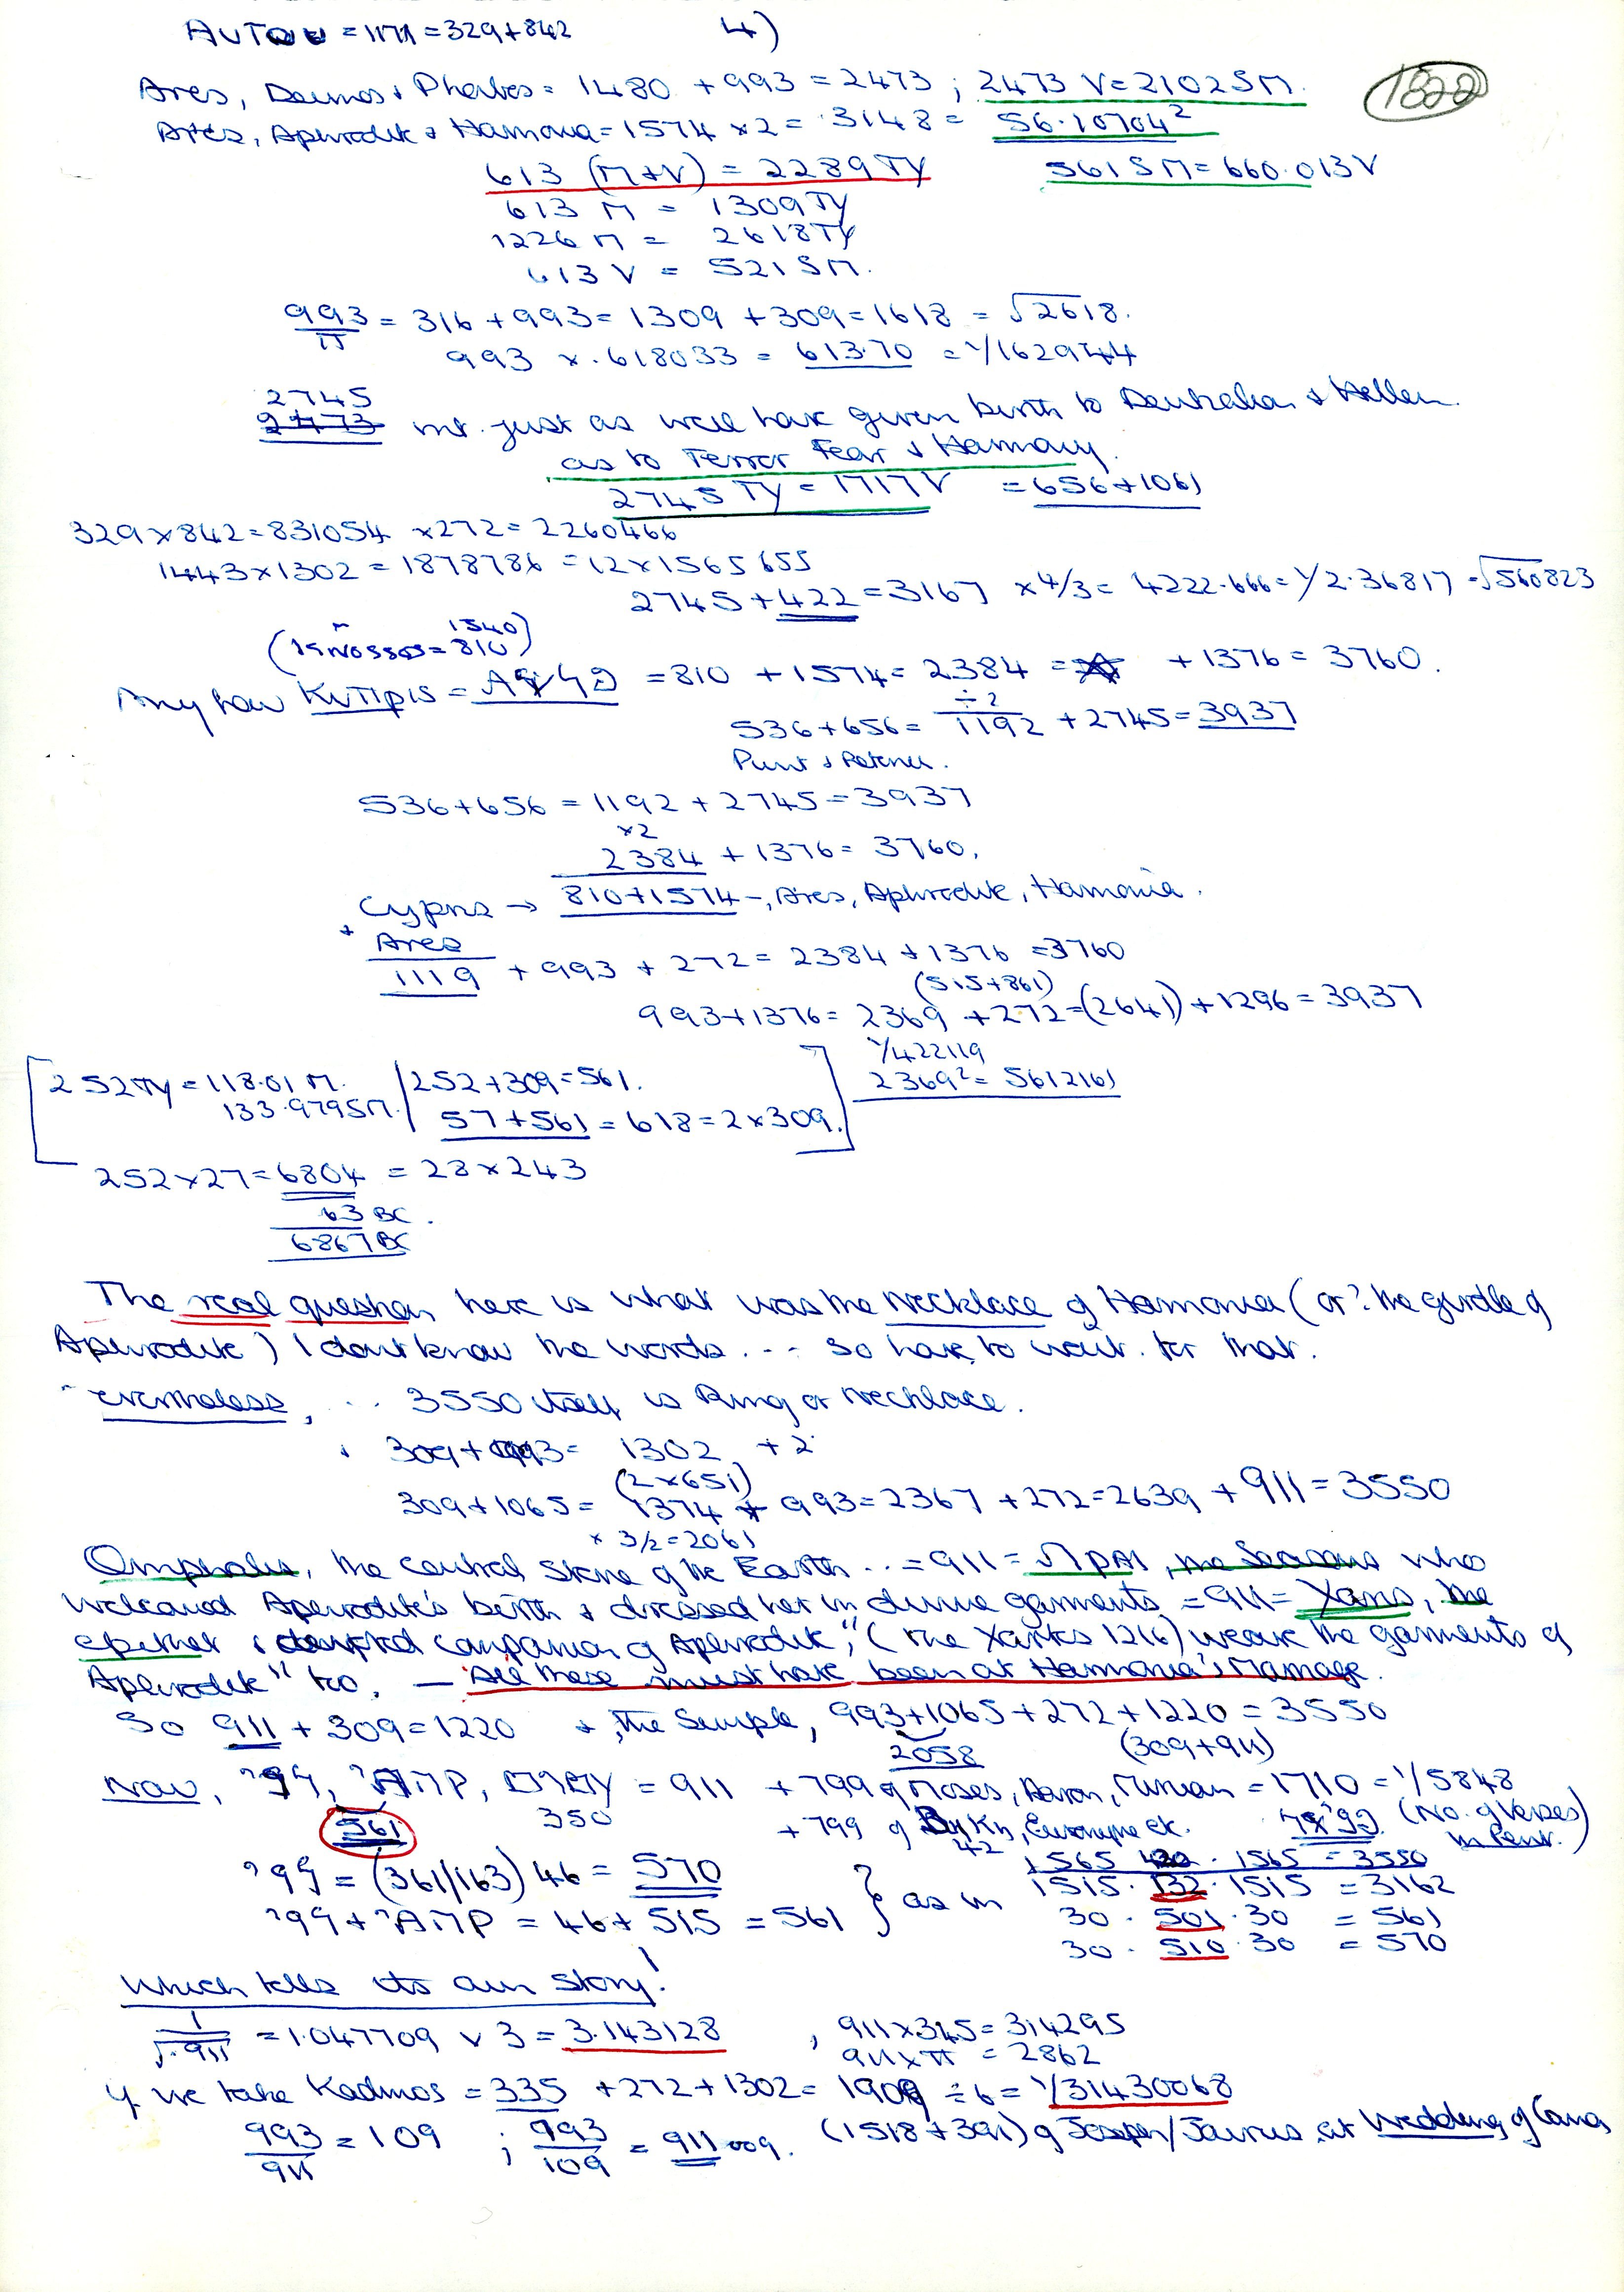 = 1171 = 329+842
4)
1822
Ares, Deimos + Phobos = 1480 + 993 = 2473 ; 2473 V = 2102 SM.
Ares, Aphrodite + Harmonia = 1574 x 2 = 3148 = 56.10704²
613 (M+V) = 2289 TY
561 SM = 660.013 V
613 M = 1309 TY
1226 M = 2618 TY
613 V = 521 SM.
993/π = 316 + 993 = 1309 + 309 = 1618 = √2618.
993 x .618033 = 613.70 = 1/162944
2745
2473 mt. just as well have given birth to Deukalion + Hellen.
as to Terror Fear + Harmony.
2745 TY = 1717 V = 656+1061
329 x 842 = 831054 x 272 = 2260466
1443 x 1302 = 1878786 = 12 x 1565655
2745 + 422 = 3167 x 4/3 = 4222.666 = 1/2.36817 = √560823
1540
(Knossos = 810)
Any how = 810 + 1574 = 2384 = + 1376 = 3760.
÷2
536 + 656 = 1192 + 2745 = 3937
Punt +
536 + 656 = 1192 + 2745 = 3937
x2
2384 + 1376 = 3760.
Cyprus → 810 + 1574 -, Ares, Aphrodite, Harmonia.
+ Ares
1119 + 993 + 272 = 2384 + 1376 = 3760
(515+861)
993 + 1376 = 2369 + 272 = (2641) + 1296 = 3937
1/422119
2369² = 5612161
252 TY = 118.01 M. / 252 + 309 = 561.
133.979 SM. / 57 + 561 = 618 = 2 x 309.
252 x 27 = 6804 = 28 x 243
63 BC.
6867 BC
The real question here is what was the Necklace of Harmonia (or ? the girdle of
Aphrodite) I dont know the words ... so have to wait for that.
Nevertheless, .. 3550 itself is Ring or Necklace.
+ 309 + 993 = 1302 + 2
(2 x 651)
309 + 1065 = 1374 + 993 = 2367 + 272 = 2639 + 911 = 3550
x 3/2 = 2061
Omphalos, the central stone of the Earth ... = 911 = ΩΡΑΙ, the Seasons who
welcomed Aphrodite's birth + dressed her in divine garments = 911 = Xaris, the
epithet + companion of Aphrodite", (the Xarites 1216) weave the garments of
Aphrodite" too. — All these must have been at Harmonia's Marriage.
So 911 + 309 = 1220 + , the Simple, 993 + 1065 + 272 + 1220 = 3550
2058 (309 + 911)
Now, = 911 + 799 of Moses, Aaron, Miriam = 1710 = 1/5848
561 350 + 799 of Eurynome etc. (No. of Verses
42 in Pent.)
1565 420 . 1565 = 3550
= (361/163) 46 = 570
1515 . 132 . 1515 = 3162
= 46 + 515 = 561 } as in
30 . 501 . 30 = 561
30 . 510 . 30 = 570
Which tells its own story!
1/√.911 = 1.047709 x 3 = 3.143128 , 911 x 345 = 314295
911 x π = 2862
If we take Kadmos = 335 + 272 + 1302 = 1909 ÷ 6 = 1/31430068
993/911 = 109 ; 993/109 = 911009. (1518 + 391) of Joseph/Jairus at Wedding of Cana